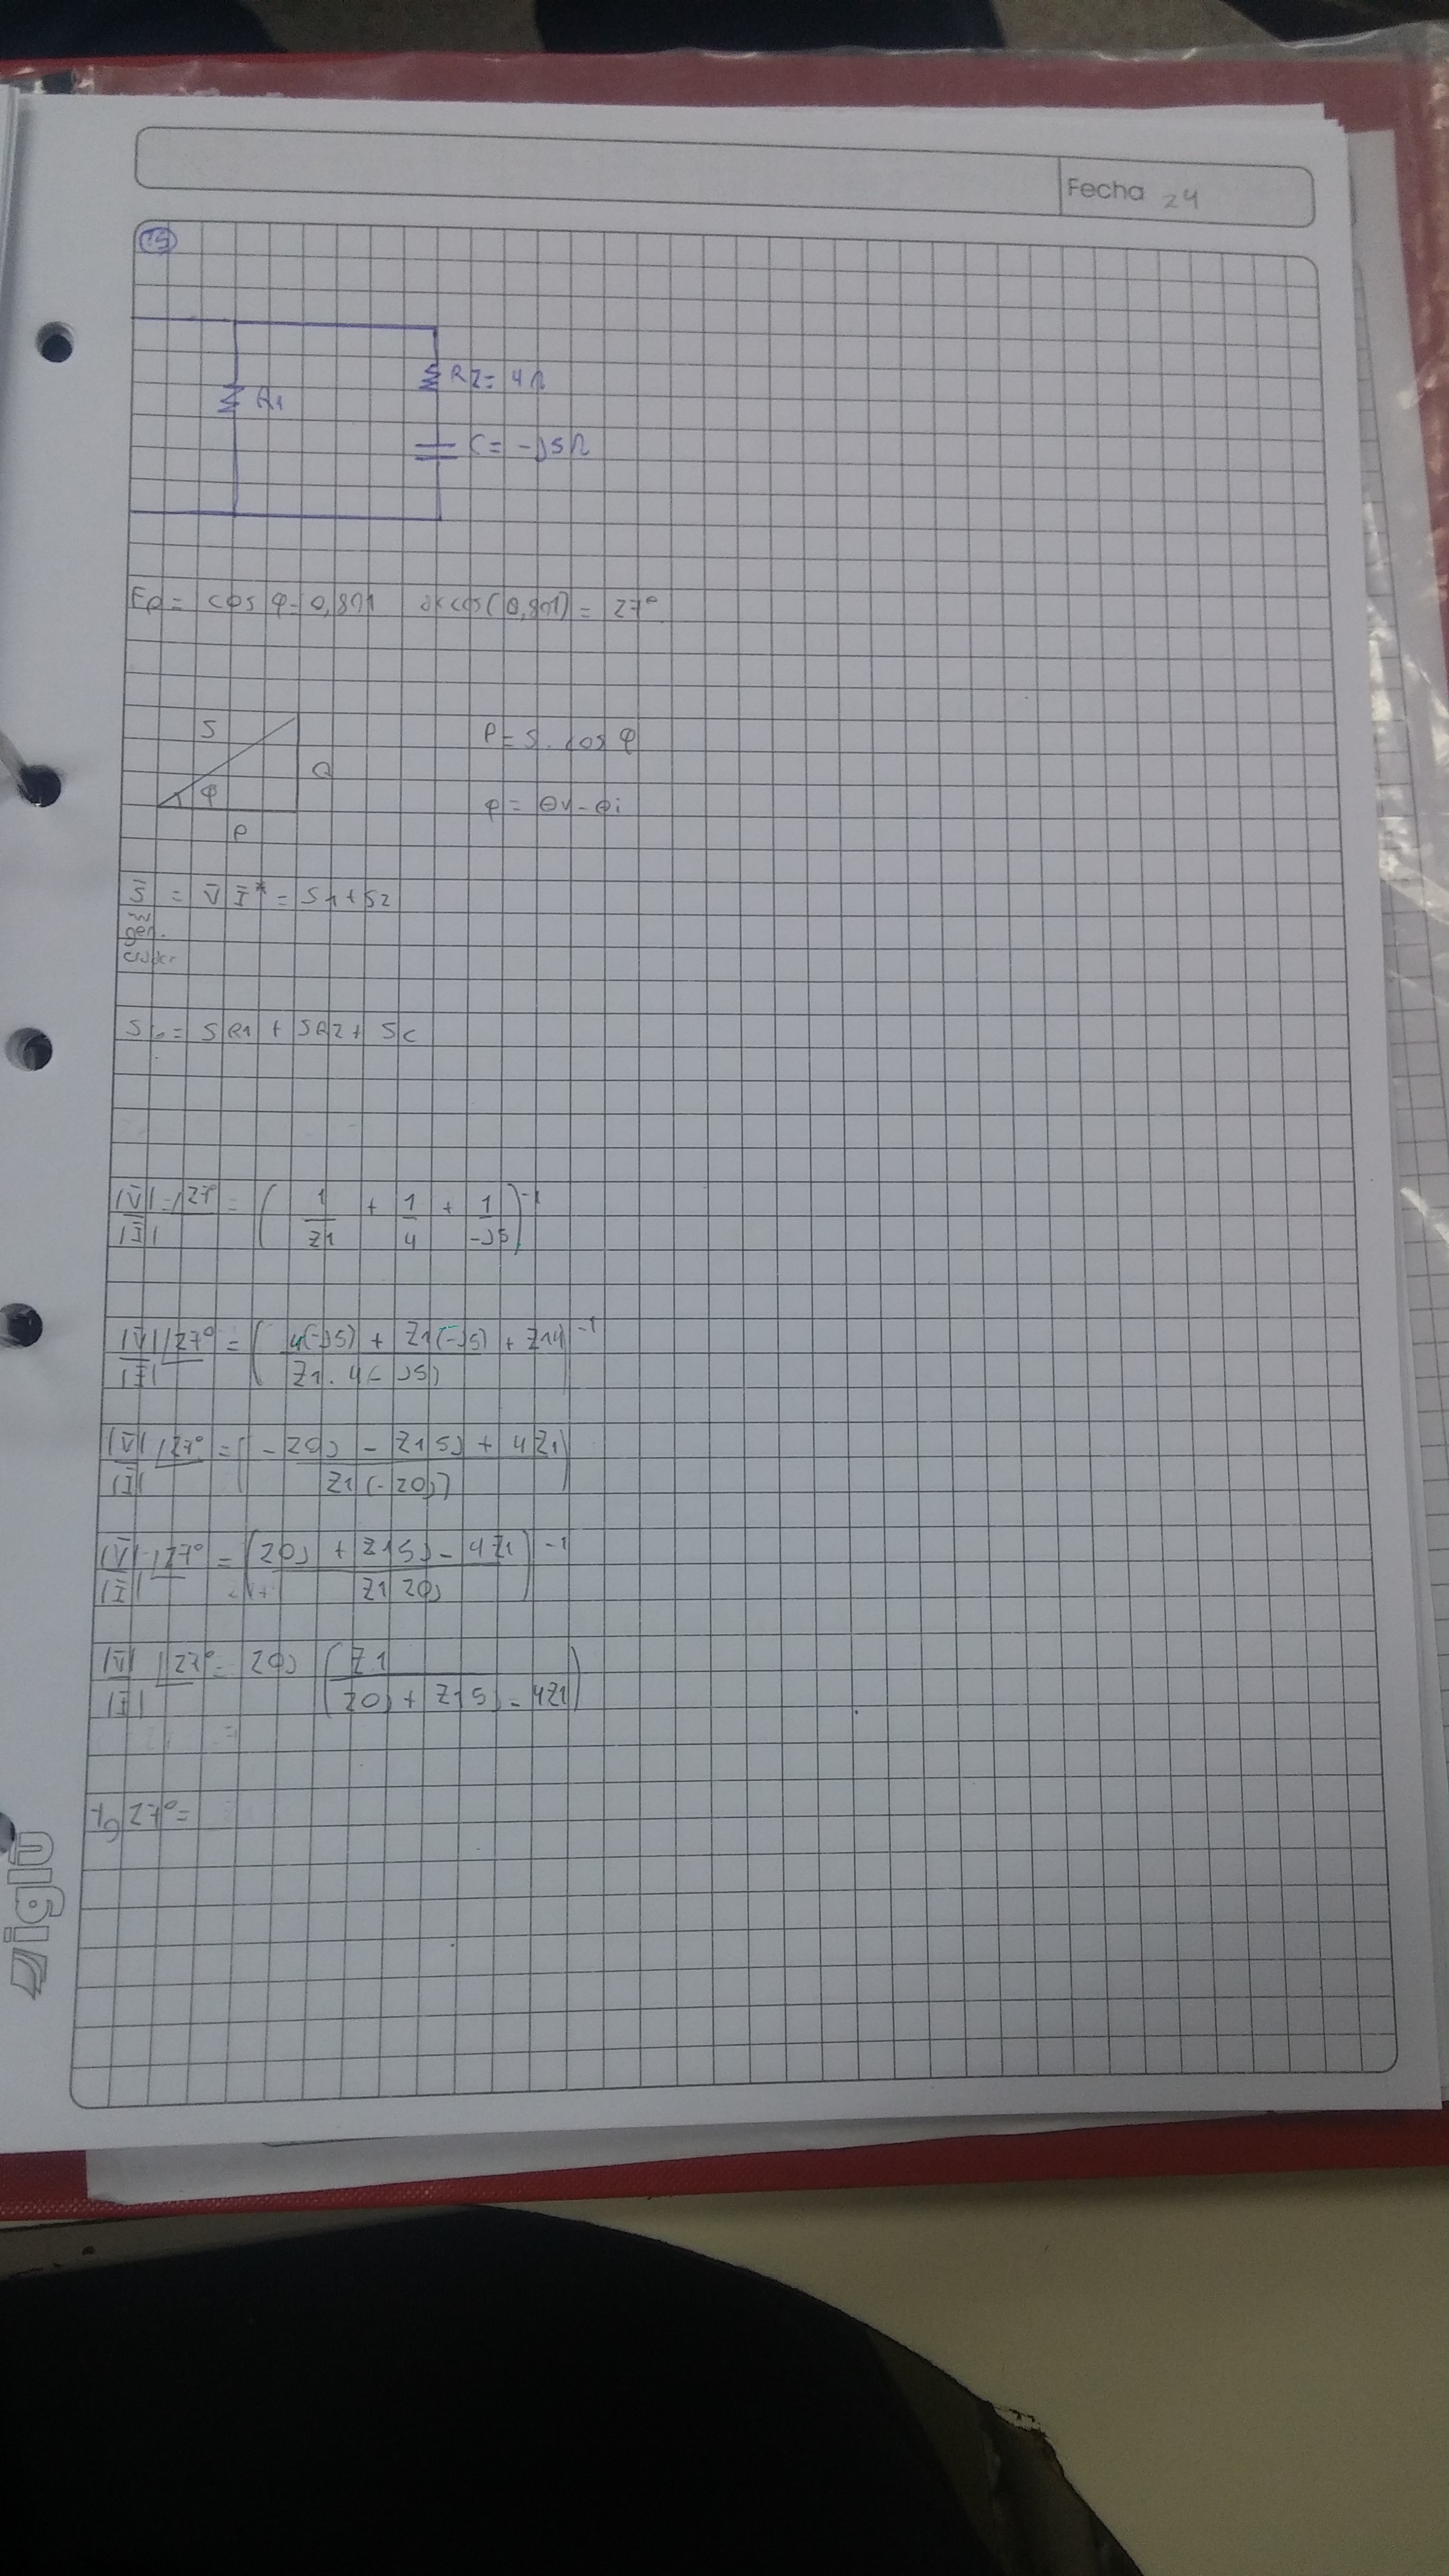 Fecha 24
15
R2= 4Ω
R1
C= -j5Ω
Fp= cos φ= 0,891 arccos(0,891)= 27°
S
P= S. cos φ
Q
φ
φ= θv-θi
P
S̄ = V̄ Ī* = S1+S2
gen.
S = SR1 + SR2 + SC
|V̄| /27° = ( 1 + 1 + 1 )-1
|Ī| Z1 4 -j5
|V̄| /27° = ( 4(-j5) + Z1(-j5) + Z14 )-1
|Ī| Z1. 4(-j5)
|V̄| /27° = ( -20j - Z15j + 4Z1 )
|Ī| Z1 (-20j)
|V̄| /27° = ( 20j + Z15j - 4Z1 )-1
|Ī| Z1 20j
|V̄| /27° = 20j ( Z1 )
|Ī| 20j + Z15j - 4Z1
=
tg 27°=
iglú